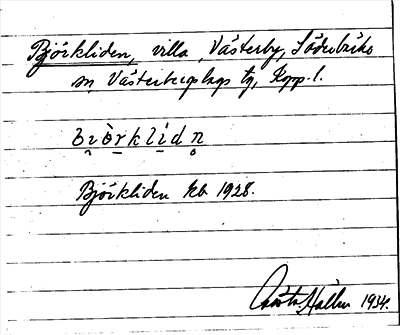 Björkliden, villa, Västerby, Söderbärke
sn Västerbergslags tg, Kopp. l.
bi̯ö̀rklídn̥
Björkliden kb 1928.
Gösta Hallin 1934.